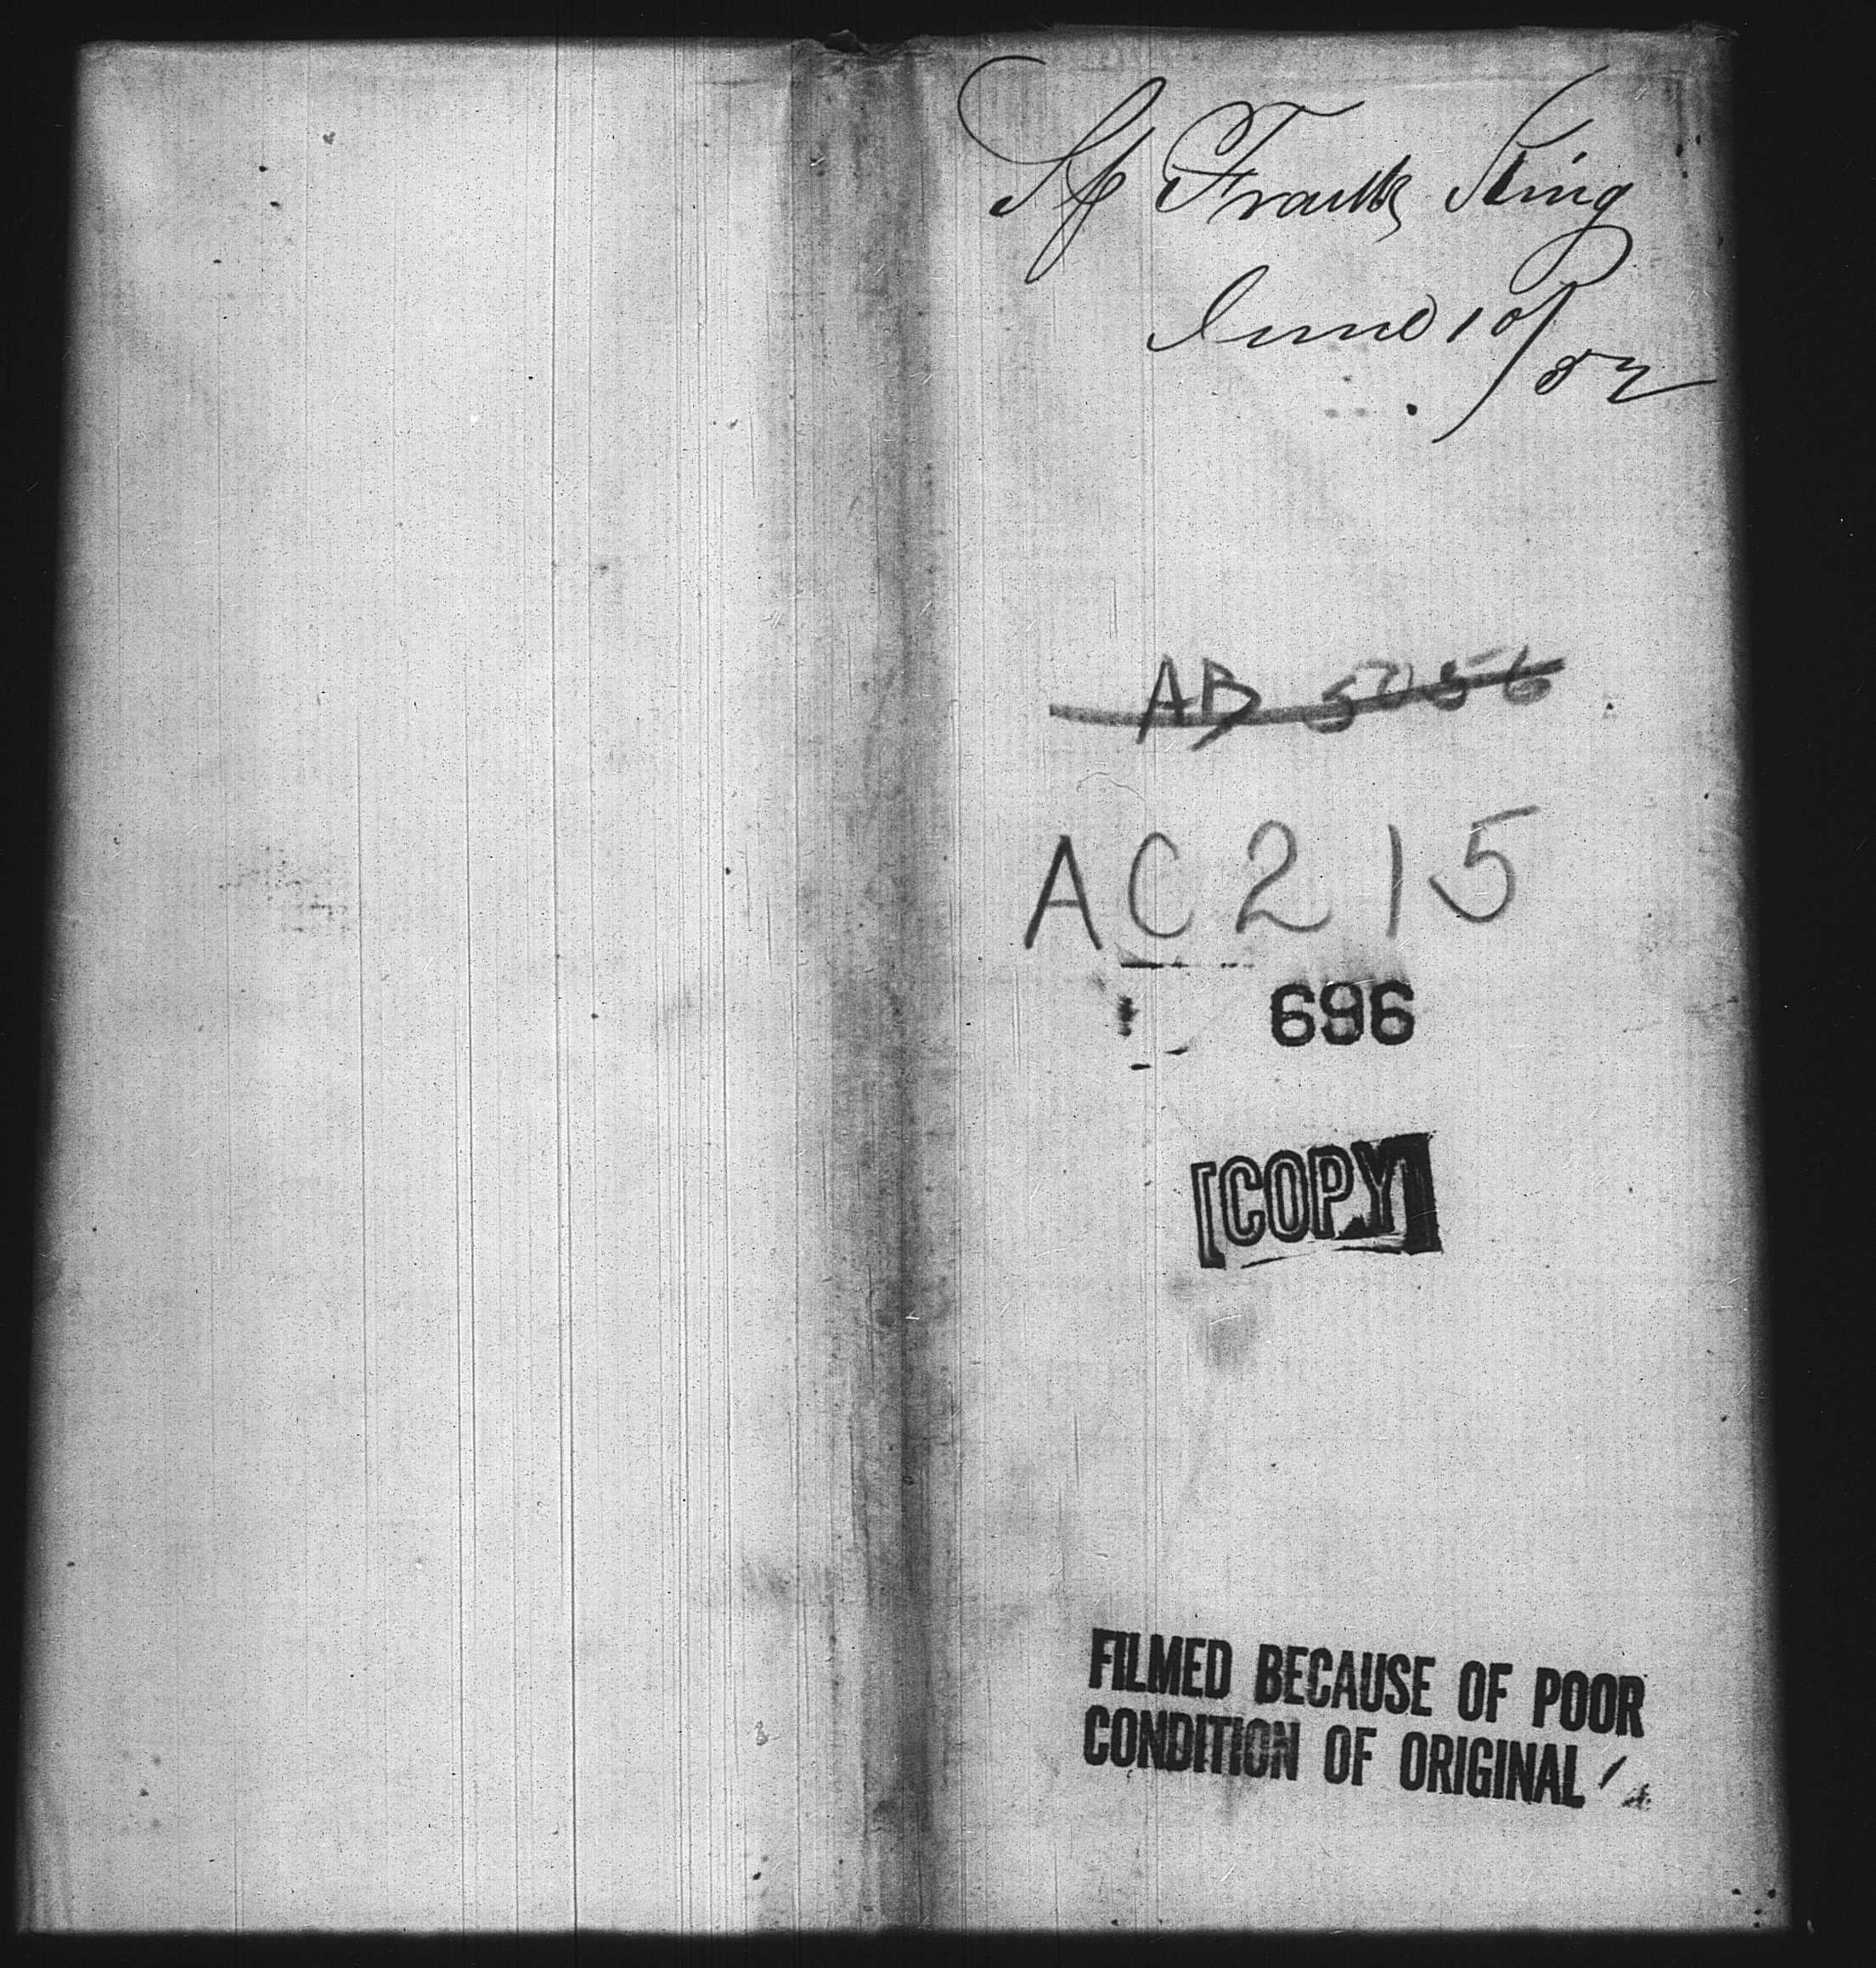 Frank King
June 10/82
AB 5056
AC 215
696
[COPY]
FILMED BECAUSE OF POOR
CONDITION OF ORIGINAL